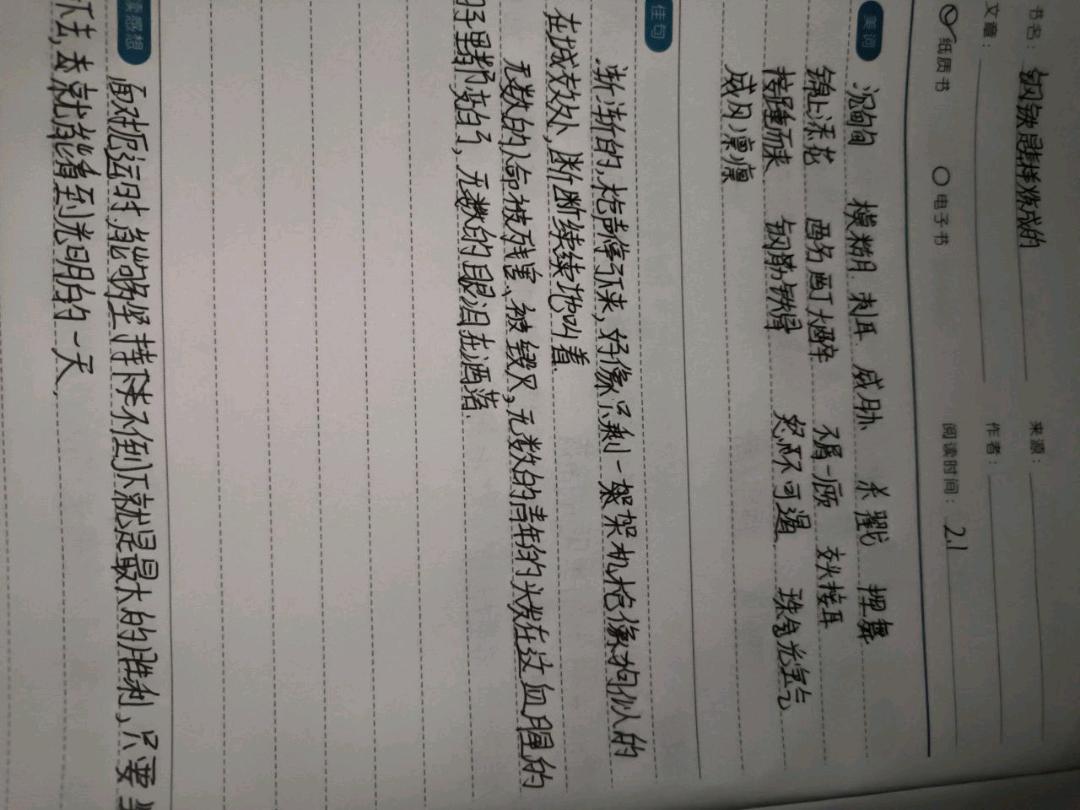 书名：钢铁是怎样炼成的 来源：
文章： 作者：
纸质书 电子书 阅读时间：2.1
美词
模糊 刺耳 威胁 挥舞
锦上添花 酩酊大醉 不屑一顾 交头接耳
接踵而来 钢筋铁骨 怒不可遏 珠光宝气
威风凛凛
佳句
渐渐的，枪声停下来，好像只剩一架架机枪像狗似的
在城效处，断断续续地叫着.
无数的人命被残害、被毁灭，无数的青年的头发在这血腥的
子里都变白了，无数的眼泪在洒落.
读感想
面对厄运时，能够坚持下来不倒下就是最大的胜利，只要
下去，去就能看到光明的一天.